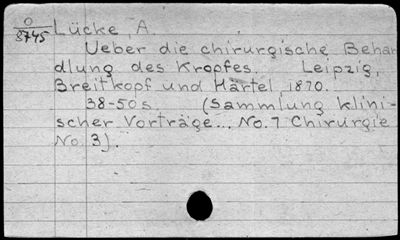 O
8745
Lücke, A.
Ueber die chirurgische Behan-
dlung des Kropfes. Leipzig,
Breitkopf und Härtel, 1870.
38-50 s. (Sammlung klini-
scher Vorträge... No. 7 Chirurgie
No. 3).